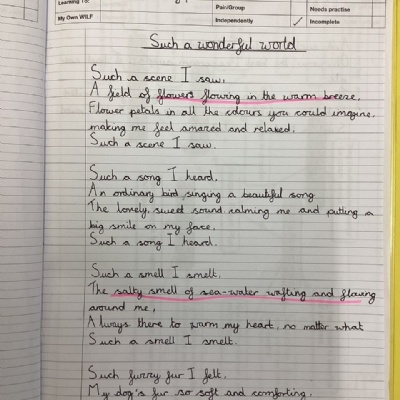 Learning To:
My Own WILF
Pair/Group
Independently
Needs practise
Incomplete
Such a wonderful world
Such a scene I saw,
A field of flowers flowing in the warm breeze,
Flower petals in all the colours you could imagine,
making me feel amazed and relaxed,
Such a scene I saw.
Such a song I heard,
An ordinary bird singing a beautiful song
The lovely, sweet sound calming me and putting a
big smile on my face,
Such a song I heard.
Such a smell I smelt,
The salty smell of sea-water wafting and flowing
around me,
Always there to warm my heart, no matter what
Such a smell I smelt.
Such furry fur I felt,
My dog's fur so soft and comforting,